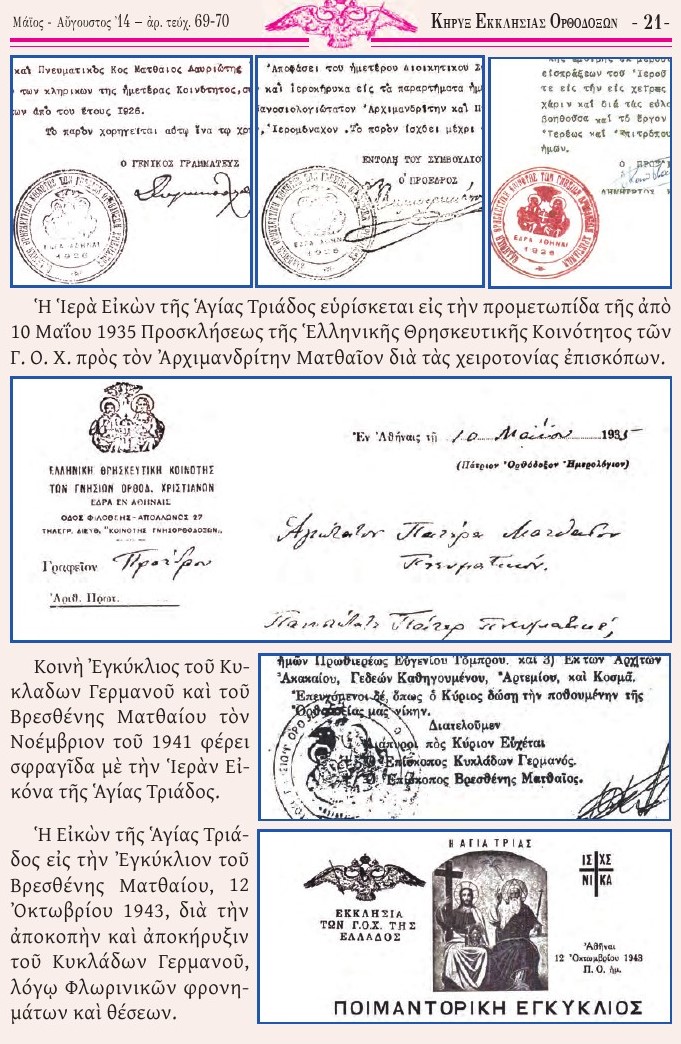 Μάϊος - Αὔγουστος '14 – ἀρ. τεύχ. 69-70
ΚΗΡΥΞ ΕΚΚΛΗΣΙΑΣ ΟΡΘΟΔΟΞΩΝ - 21-
καί Πνευματικός Κος Ματθαῖος Δαυριώτης
των κληρικων της ἡμετέρας Κοινότητος,
ων ἀπο του ἔτους 1926.
Το παρόν χορηγεῖται αὐτῷ ἵνα τῳ
Ο ΓΕΝΙΚΟΣ ΓΡΑΜΜΑΤΕΥΣ
ΕΔΡΑ ΑΘΗΝΑΙ
1926
Ἀποφάσει του ἡμετέρου Διοικητικου
καί Ἱεροκήρυκα εἰς τα παραρτήματα
Πανοσιολογιώτατον Ἀρχιμανδρίτην και
Ἱερομόναχον .Το παρον ἰσχύει μέχρι
ΕΝΤΟΛΗ ΤΟΥ ΣΥΜΒΟΥΛΙΟΥ
Ὁ ΠΡΟΕΔΡΟΣ
ΕΔΡΑ ΑΘΗΝΑΙ
1926
εἰσπράξεων τοῦ Ἱεροῦ
τε εἰς τήν εἰς χεῖρας
χάριν καί διά τάς εὐλο
βοηθοῦσα καί τό ἔργον
Ἱερέως καί Ἐπιτρόπου
ἡμων.
ΕΔΡΑ ΑΘΗΝΑΙ
1926
Ἡ Ἱερὰ Εἰκὼν τῆς Ἁγίας Τριάδος εὑρίσκεται εἰς τὴν προμετωπίδα τῆς ἀπὸ
10 Μαΐου 1935 Προσκλήσεως τῆς Ἑλληνικῆς Θρησκευτικῆς Κοινότητος τῶν
Γ. Ο. Χ. πρὸς τὸν Ἀρχιμανδρίτην Ματθαῖον διὰ τὰς χειροτονίας ἐπισκόπων.
ΕΛΛΗΝΙΚΗ ΘΡΗΣΚΕΥΤΙΚΗ ΚΟΙΝΟΤΗΣ
ΤΩΝ ΓΝΗΣΙΩΝ ΟΡΘΟΔ. ΧΡΙΣΤΙΑΝΩΝ
ΕΔΡΑ ΕΝ ΑΘΗΝΑΙΣ
ΟΔΟΣ ΦΙΛΟΘΕΗΣ-ΑΠΟΛΛΩΝΟΣ 27
ΤΗΛΕΓΡ. ΔΙΕΥΘ. "ΚΟΙΝΟΤΗΣ ΓΝΗΣΙΟΡΘΟΔΟΞΩΝ„
Γραφεῖον Προέδρου
Ἀριθ. Πρωτ.
Ἐν Ἀθήναις τῇ 10 Μαΐου 1935
(Πάτριον Ὀρθόδοξον Ἡμερολόγιον)
Ἁγιώτατον Πατέρα Ματθαῖον
Πνευματικόν.
Πάτερ Πνευματικέ,
Κοινὴ Ἐγκύκλιος τοῦ Κυ-
κλαδων Γερμανοῦ καὶ τοῦ
Βρεσθένης Ματθαίου τὸν
Νοέμβριον τοῦ 1941 φέρει
σφραγῖδα μὲ τὴν Ἱερὰν Εἰ-
κόνα τῆς Ἁγίας Τριάδος.
ἡμῶν Πρωθιερέως Εὐγενίου Τόμπρου. καὶ 3) Ἐκ τῶν Ἀρχιτῶν
Ἀκακαίου, Γεδεὼν Καθηγουμένου, Ἀρτεμίου, καὶ Κοσμᾶ.
Ἐπευχόμενοι δέ, ὅπως ὁ Κύριος δώσῃ τὴν ποθουμένην τῆς
Ὀρθοδοξίας μας νίκην.
Διατελοῦμεν
Διάπυροι πὸς Κύριον Εὐχέται
Ὁ Ἐπίσκοπος Κυκλάδων Γερμανός.
Ὁ Ἐπίσκοπος Βρεσθένης Ματθαῖος.
Ἡ Εἰκὼν τῆς Ἁγίας Τριά-
δος εἰς τὴν Ἐγκύκλιον τοῦ
Βρεσθένης Ματθαίου, 12
Ὀκτωβρίου 1943, διὰ τὴν
ἀποκοπὴν καὶ ἀποκήρυξιν
τοῦ Κυκλάδων Γερμανοῦ,
λόγῳ Φλωρινικῶν φρονη-
μάτων καὶ θέσεων.
Η ΑΓΙΑ ΤΡΙΑΣ
ΕΚΚΛΗΣΙΑ
ΤΩΝ Γ.Ο.Χ. ΤΗΣ
ΕΛΛΑΔΟΣ
ΙΣ ΧΣ
ΝΙ ΚΑ
Ἀθῆναι
12 Ὀκτωμβρίου 1943
Π. Ο. ἡμ.
ΠΟΙΜΑΝΤΟΡΙΚΗ ΕΓΚΥΚΛΙΟΣ